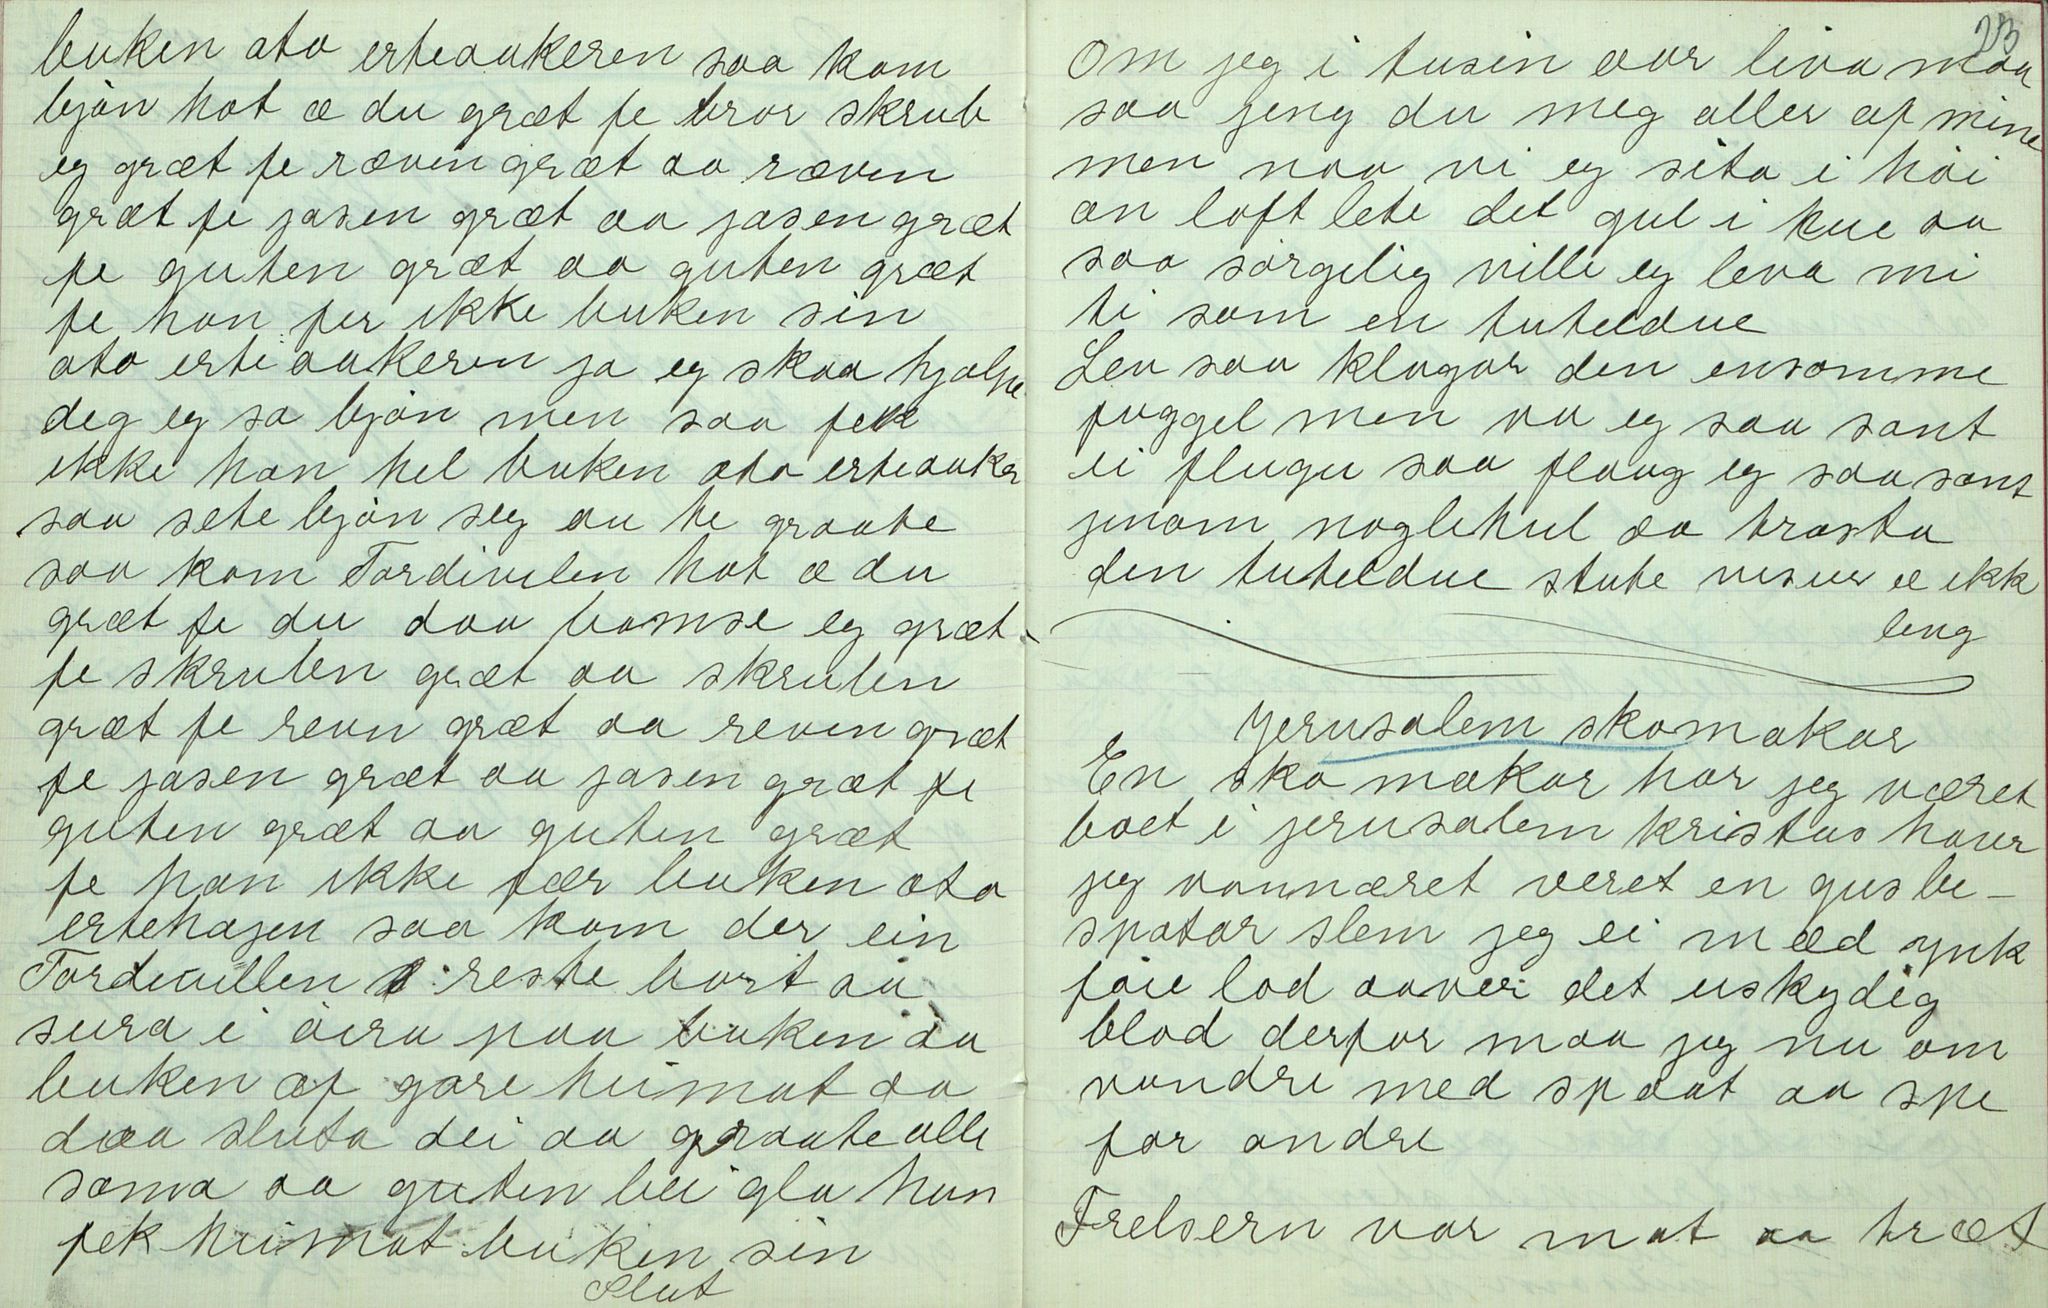 buken ato erteaakeren saa kom
bjøn hot æ du græt fe bror skrub
eg græt fe ræven græt aa ræven
græt fe jasen græt aa jasen græt
fe guten græt aa guten græt
fe han fer ikke buken sin
ato erteaakeren ja eg skaa hjølpe
deg eg sa bjøn men saa fek
ikke han hel buken ato erteaaker
saa sete bjøn seg aa te graate
saa kom Tordivelen hot æ du
græt fe du daa bamse eg græt
fe skruben græt aa skruben
græt fe revn græt aa reven græt
fe jasen græt aa jasen græt fe
guten græt aa guten græt
fe han ikke fær buken ato
ertehajen saa kom der ein
Tordivellen reste bort aa
sura i øira paa buken aa
buken af gare heimat aa
daa sluta dei aa graate alle
sama aa guten blei gla han
fek heimat buken sin
Slut
23
Om jeg i tusin aar liva maa
saa jeng du meg aller af mine
men naa vi eg sita i høi
an loft lete det gul i kue aa
saa sørgelig ville eg leva mi
ti som en tuteldue
Lev saa klagar den ensomme
fuggel men va eg saa sant
ei flugu saa flaag eg saa sant
jenom noglehul aa trøsta
den tuteldue stute visuer æ ikk
leng
Jerusalem skomakar
En skomakar har jeg været
boet i jerusalem kristus haver
jeg vannæret veret en gusbe-
spatar slem jeg ei med ynk
føie lod aaver det uskydig
blod derfor maa jeg nu om
vandre med spaat aa spe
for andre
Frelsern var mat aa træt